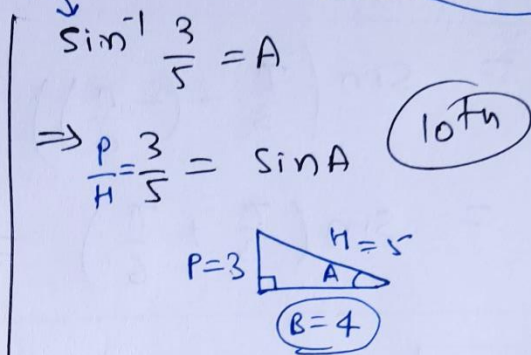 Sin⁻¹ 3/5 = A
⇒ P/H = 3/5 = sin A
10th
P=3 H=5
A
B=4